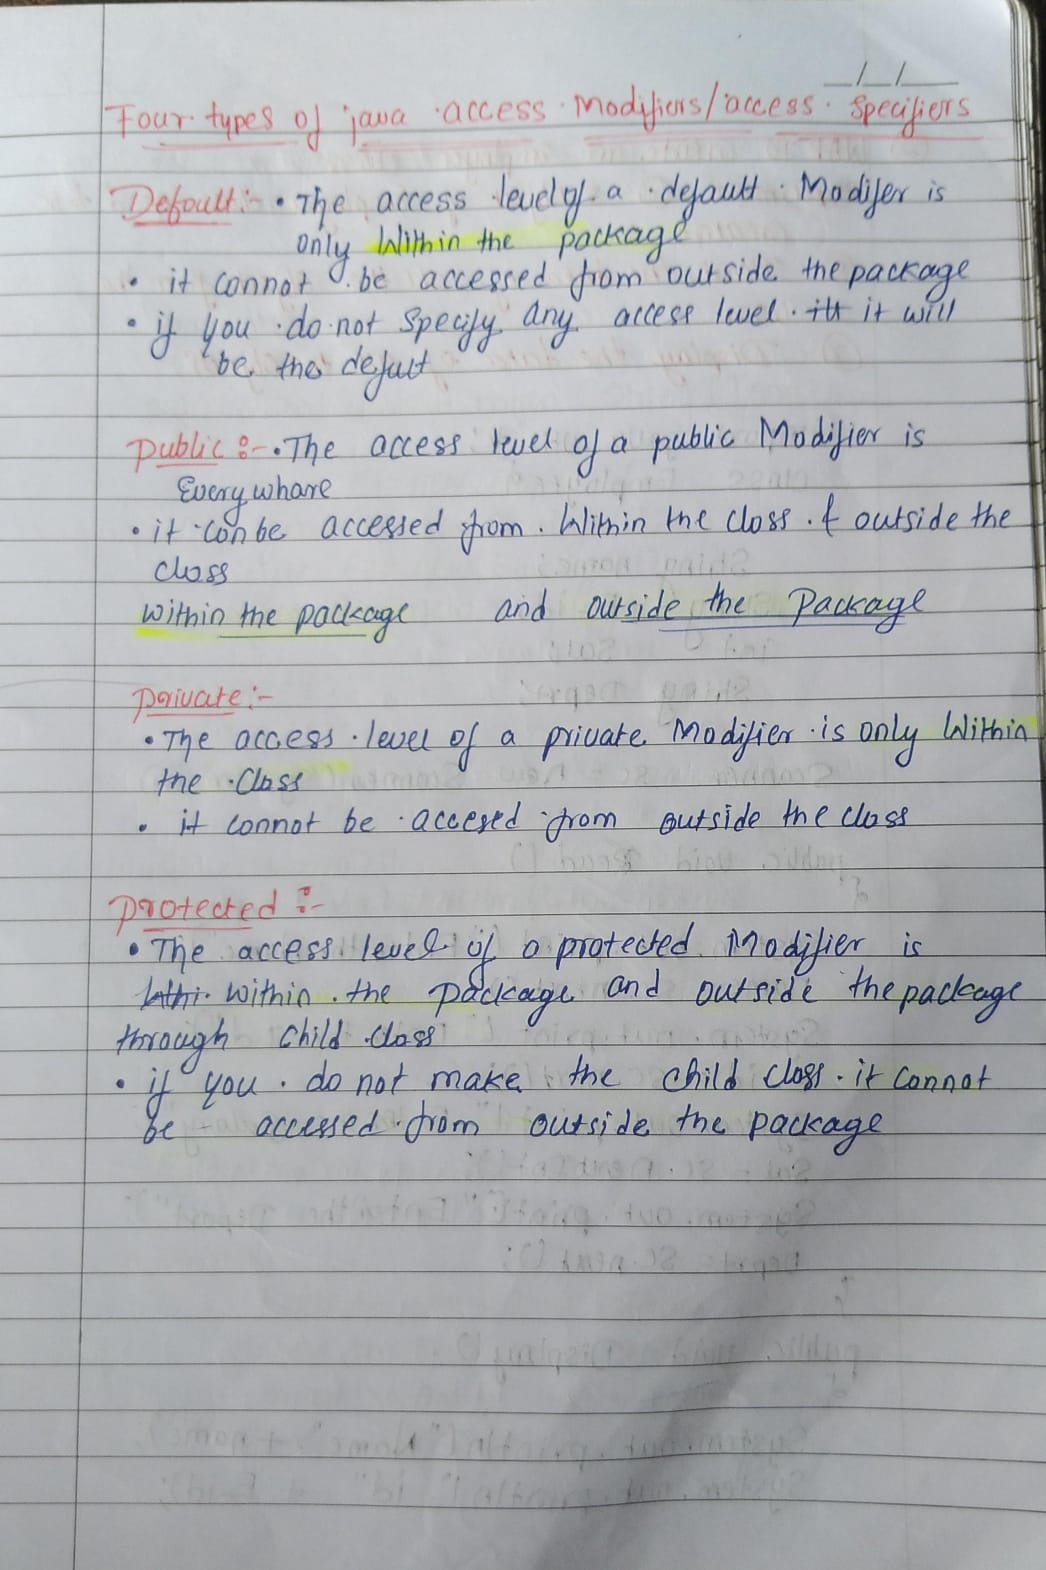 __/__/____
Four types of java access Modifiers/access Specifiers
Default:- • The access level of a default Modifer is
only Within the package
• it cannot be accessed from outside the package
• if you do not Specify any access level it it will
be the defult
public :- • The access level of a public Modifier is
Everywhare
• it can be accessed from Within the class & outside the
class
within the package and outside the Package
private:-
• The access level of a private Modifier is only Within
the Class
• it cannot be accesed from outside the class
protected :-
• The access level of a protected Modifier is
within the package and outside the package
through child class
• if you do not make the child class it cannot
be accessed from outside the package